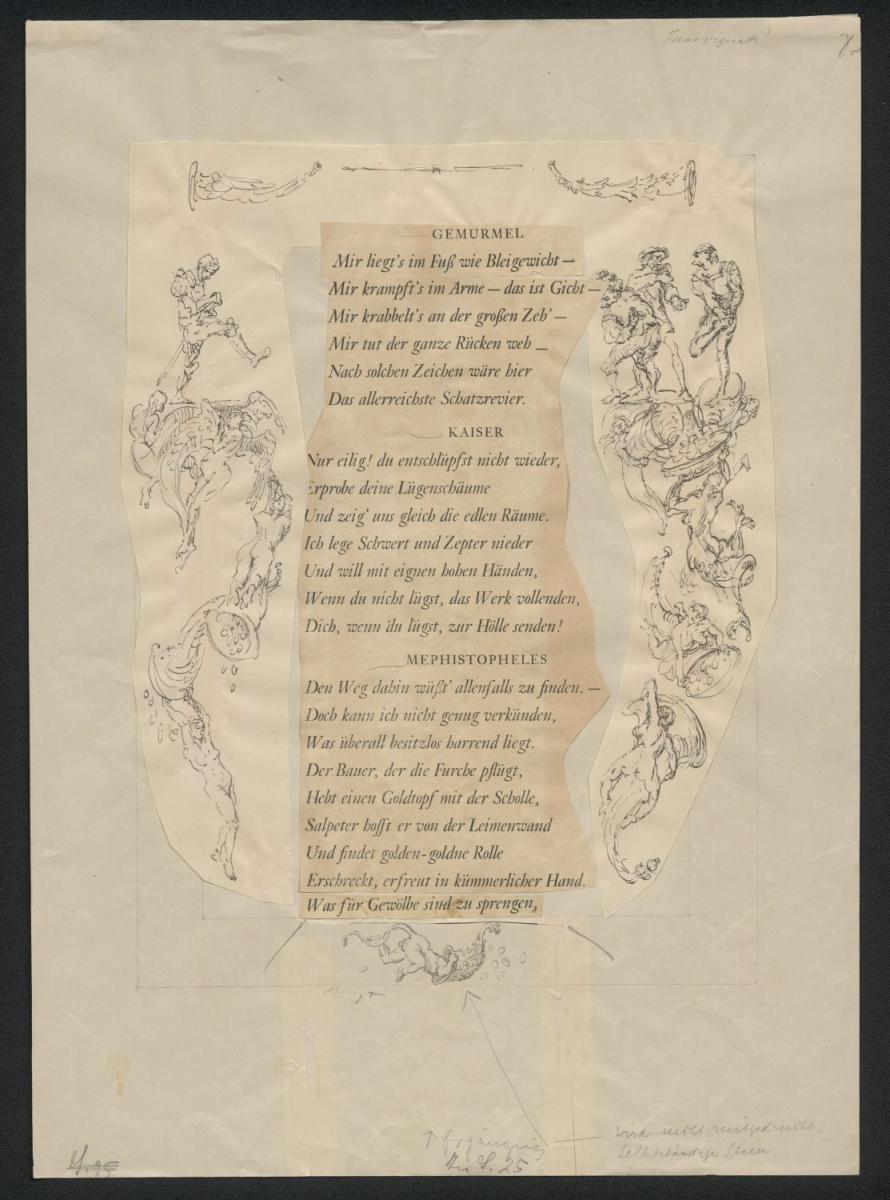 GEMURMEL
Mir liegt's im Fuß wie Bleigewicht —
Mir krampft's im Arme — das ist Gicht —
Mir krabbelt's an der großen Zeh' —
Mir tut der ganze Rücken weh —
Nach solchen Zeichen wäre hier
Das allerreichste Schatzrevier.
KAISER
Nur eilig! du entschlüpfst nicht wieder,
Erprobe deine Lügenschäume
Und zeig' uns gleich die edlen Räume.
Ich lege Schwert und Zepter nieder
Und will mit eignen hohen Händen,
Wenn du nicht lügst, das Werk vollenden,
Dich, wenn du lügst, zur Hölle senden!
MEPHISTOPHELES
Den Weg dahin wüßt' allenfalls zu finden. —
Doch kann ich nicht genug verkünden,
Was überall besitzlos harrend liegt.
Der Bauer, der die Furche pflügt,
Hebt einen Goldtopf mit der Scholle,
Salpeter hofft er von der Leimenwand
Und findet golden-goldne Rolle
Erschreckt, erfreut in kümmerlicher Hand.
Was für Gewölbe sind zu sprengen,
wird nicht mitgedruckt.
Ergänzung
Zu S. 25
S. 25